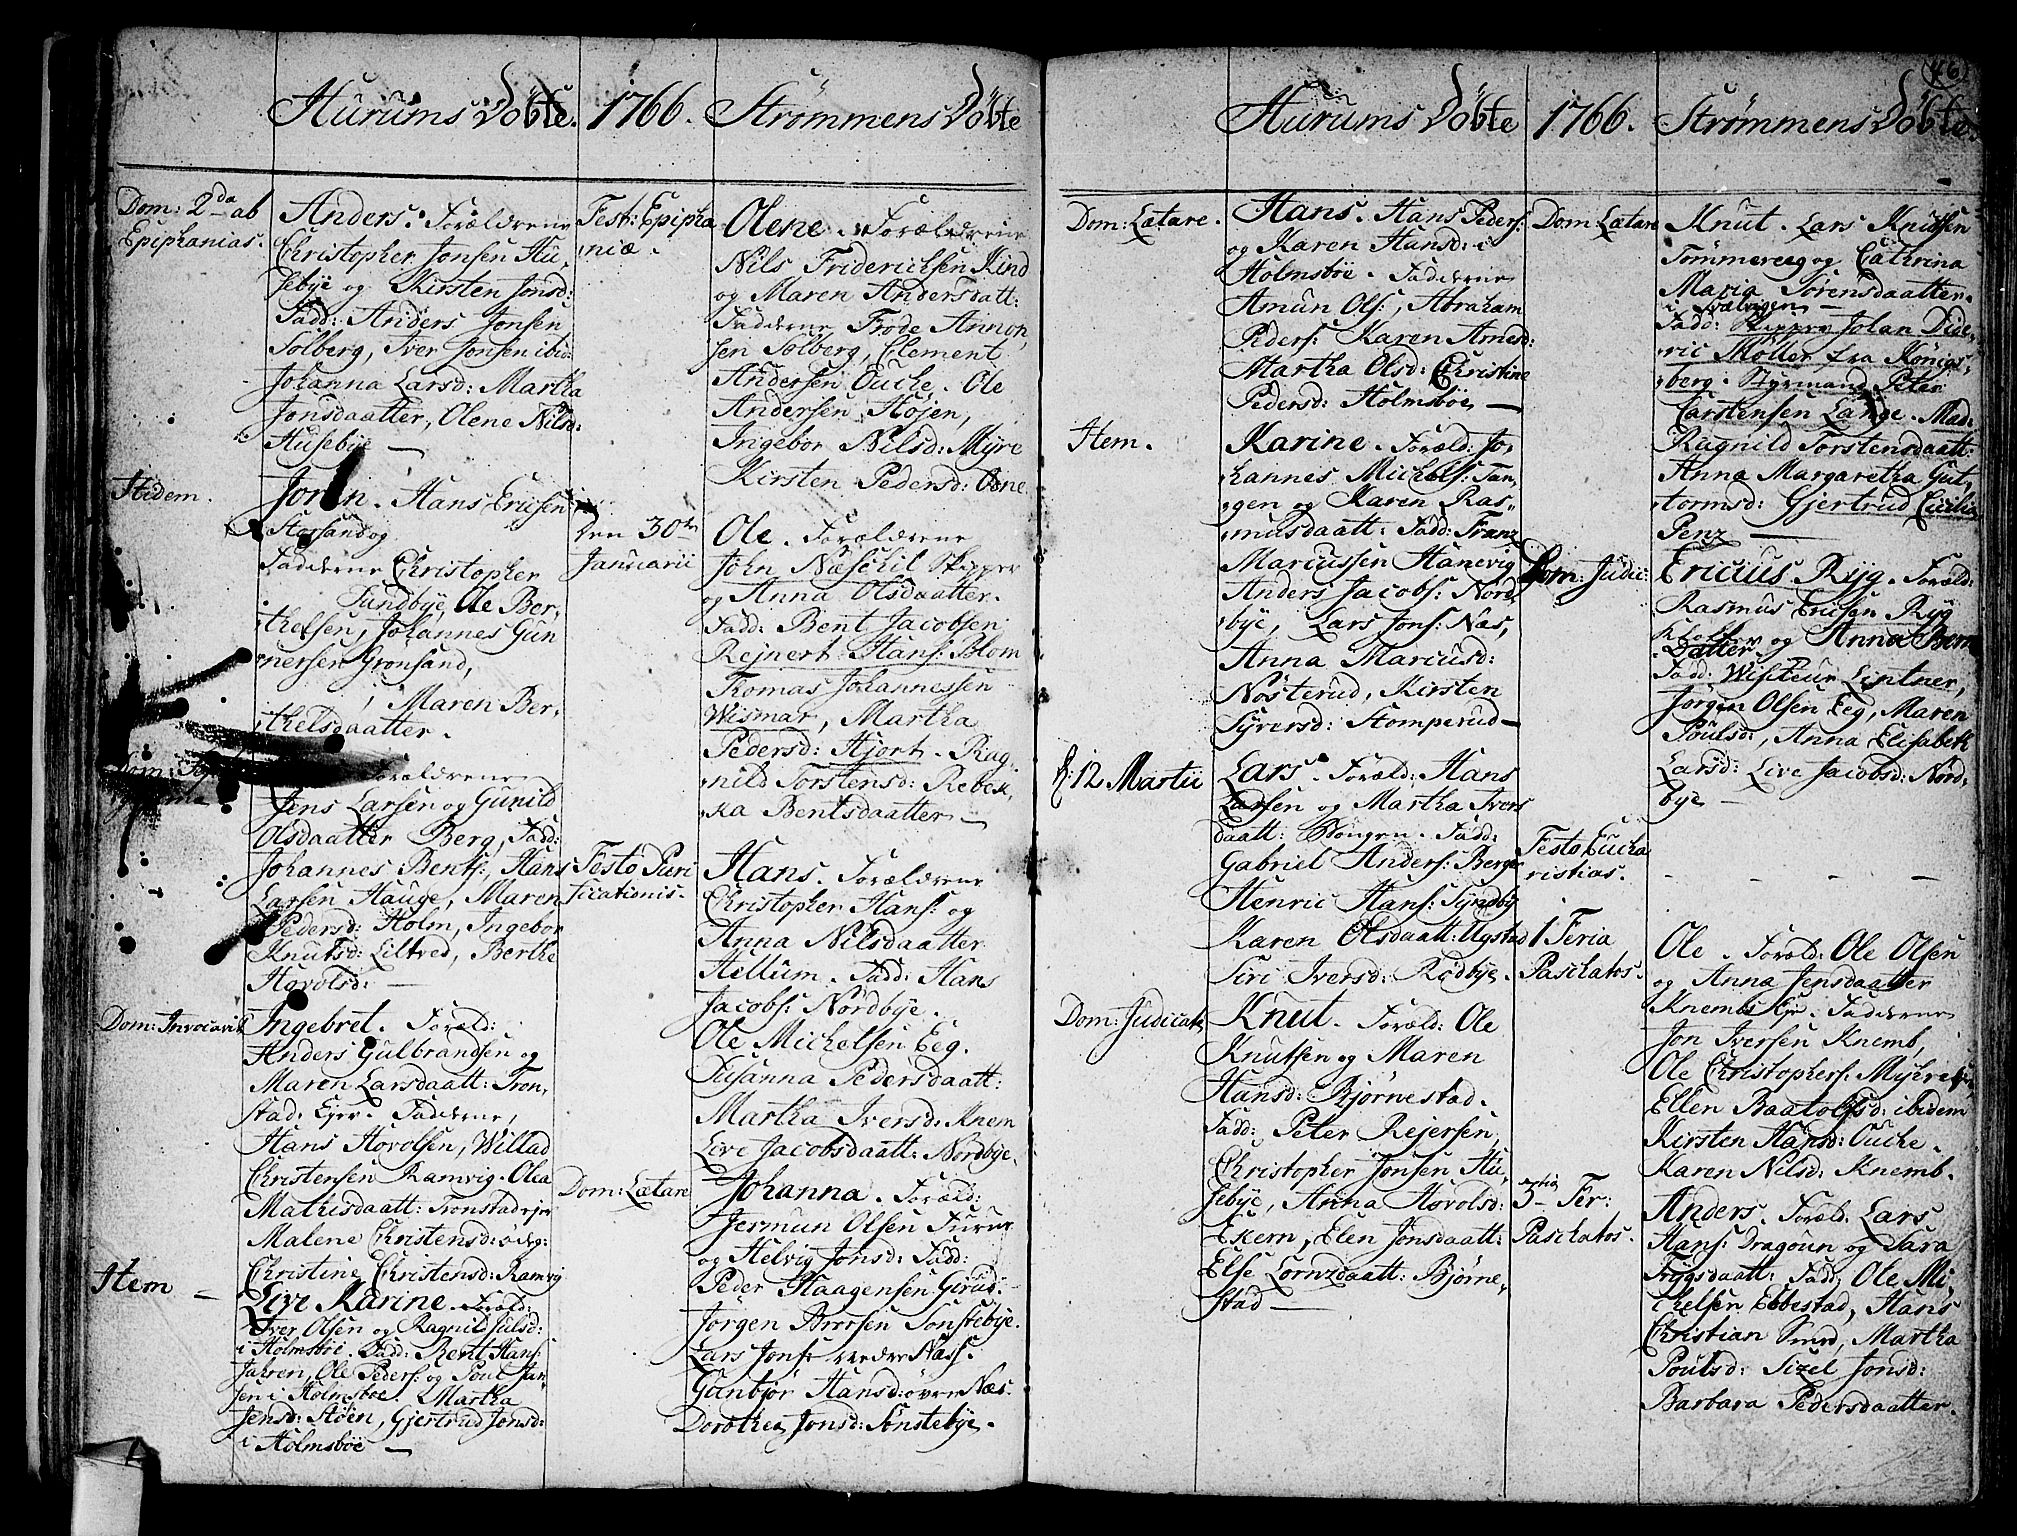 Hurums Döbte. 1766. Strömmens Döbte
Dom: 2da ab
Epiphanias.
Anders. Forældrene
Christopher Jonsen Hu,
sebÿe og Kirsten Jonsd:
Fadd: Anders Jonsen
Solberg, Iver Jonsen ibid:
Johanna Larsd: Martha
Jonsdaatter, Olene Nilsd:
Husebÿe —
Itidem.
Joren. Hans Ericsen
Storsand og
Fadderne Christopher
Sundbÿe, Ole Ber,
thelsen, Johannes Gun
nersen Grönsand,
Maren Ber,
thelsdaatter.
Forældrene
Jens Larsen og Gunild
Olsdaatter Berg, Fadd:
Johannes Bentf:, Hans
Larsen Hauge, Maren
Pedersd: Holm, Ingebor
Knutsd: Liltved, Berthe
Hovolsd: —
Dom: Invocavit
Ingebret. Foræld:
Anders Gulbrandsen og
Maren Larsdaatt: Tron,
stad: Ejer. Fadderne,
Hans Hovolsen, Willad
Christensen Ramvig. Olea
Mathisdaatt: Tronstadejer
Malene Christensd: ödeg:
Christine Christensd: Ramvig
Item —
Live Karine. Foræld:
Iver Olsen og Ragnild Julsd:
i Holmsböe. Fadd: Bent Hans:
Jahren, Ole Peders: og Poul Jan,
sen i Holmsböe, Martha
Jensd: Stöen, Gjertrud Jonsd:
i Holmsböe —
Fest: Epipha
niæ.
Olene. Forældrene
Nils Friderichsen Kind
og Maren Andersdatt:
Fadderne Frode Annon,
sen Solberg, Clement
Andersen Ouche. Ole
Andersen Höjen,
Ingebor Nilsd: Myre
Kirsten Pedersd:
den 30te
Januarii
Ole. Forældrene
John Næschil Skipper
og Anna Olsdaatter.
Fadd: Bent Jacobsen
Rejnert Hans: Blom
Tomas Johannessen
Wismar, Martha
Pedersd: Hjort. Rag,
nild Torstensd: Rebek,
ka Bentsdaatter —
Festo Puri
ficationis.
Hans. Forældrene
Christopher Hans: og
Anna Nilsdaatter
Hellum. Fadd: Hans
Jacobs: Nordbÿe.
Ole Michelsen Eeg.
Susanna Pedersdaatt:
Martha Iversd: Knem
Live Jacobsdaatt: Nordbÿe.
Dom: Lætare
Johanna. Foræld:
Jermun Olsen Furue
og Helvig Jonsd: Fadd:
Peder Haagensen Girud.
Jörgen Brorsen Sönstebÿe.
Lars Jons: nedre Næss.
Gunbjör Hansd: övre Næs.
Dorothea Jonsd: Sönstebÿe.
46
Hurums Döbte 1766. Strömmens Döbte
Dom: Lætare.
Hans. Hans Peders:
og Karen Hansd: i
Holmsböe. Fadderne
Amun Ols:, Abraham
Peders: Karen Amusd:
Martha Olsd: Christine
Pedersd: Holmsböe —
Item.
Karine. Foræld: Jo,
hannes Michels: Tan,
gen og Karen Ras,
musdaatt: Fadd: Franz
Marcussen Hanevig
Anders Jacobs: Nord,
bÿe, Lars Jons: Næs,
Anna Marcusd:
Nösterud, Kirsten
Syversd: Stomperud —
d: 12 Martii
Lars. Foræld: Hans
Larsen og Martha Ivers
daatt: Tongen. Fadd:
Gabriel Anders: Berger
Henric Hans: Sundbÿ
Karen Olsdaatt: Ugstad
Siri Iversd: Rödbÿe.
Dom: Judicat
Knut. Foræld: Ole
Knutsen og Maren
Hansd: Björnestad.
Fadd: Peter Rejersen,
Christopher Jonsen Hu,
sebÿe, Anna Hovolsd:
Ekern, Elen Jonsdaatt:
Else Lornzdaatt: Björne,
stad —
Dom: Lætare
Knut. Lars Knutsen
Tömmereeg og Cathrina
Maria Sörensdaatter.
i Svelvigen —
Fadd: Skipper Johan Dide,
ric Möller fra Königs,
berg. Styrmand Peter
Carstensen Lange. Mad:
Ragnild Torstensdaatt:
Anna Margaretha Gut,
tormsd: Gjertrud Cicilia
Penz —
Dom: Judic:
Ericus Ryg. Foræld:
Rasmus Ericsen Ryg
og Anna Bern
Datter.
Fadd: Wisiteur Lintner,
Jörgen Olsen Eeg, Maren
Poulsd:, Anna Elisabeth
Larsd: Live Jacobsd: Nord,
bÿe —
Festo Eucha
ristias. — — — —
1 Feria
Paschatos.
Ole. Foræld: Ole Olsen
og Anna Jensdaatter
Knemb Ejr. Fadderne
Jon Iversen Knemb,
Ole Christophers: Myhre,
Ellen Baatolfsd: ibidem
Kirsten Hansd: Ouche.
Karen Nilsd: Knemb.
3tia Fer:
Paschatos.
Anders. Foræld: Lars
Hans: Dragoun og Sara
Trygsdaatt: Fadd: Ole Mi,
chelsen Ebbestad, Hans
Christian Smed, Martha
Poulsd: Sizel Jonsd:
Barbara Pedersdaatter.